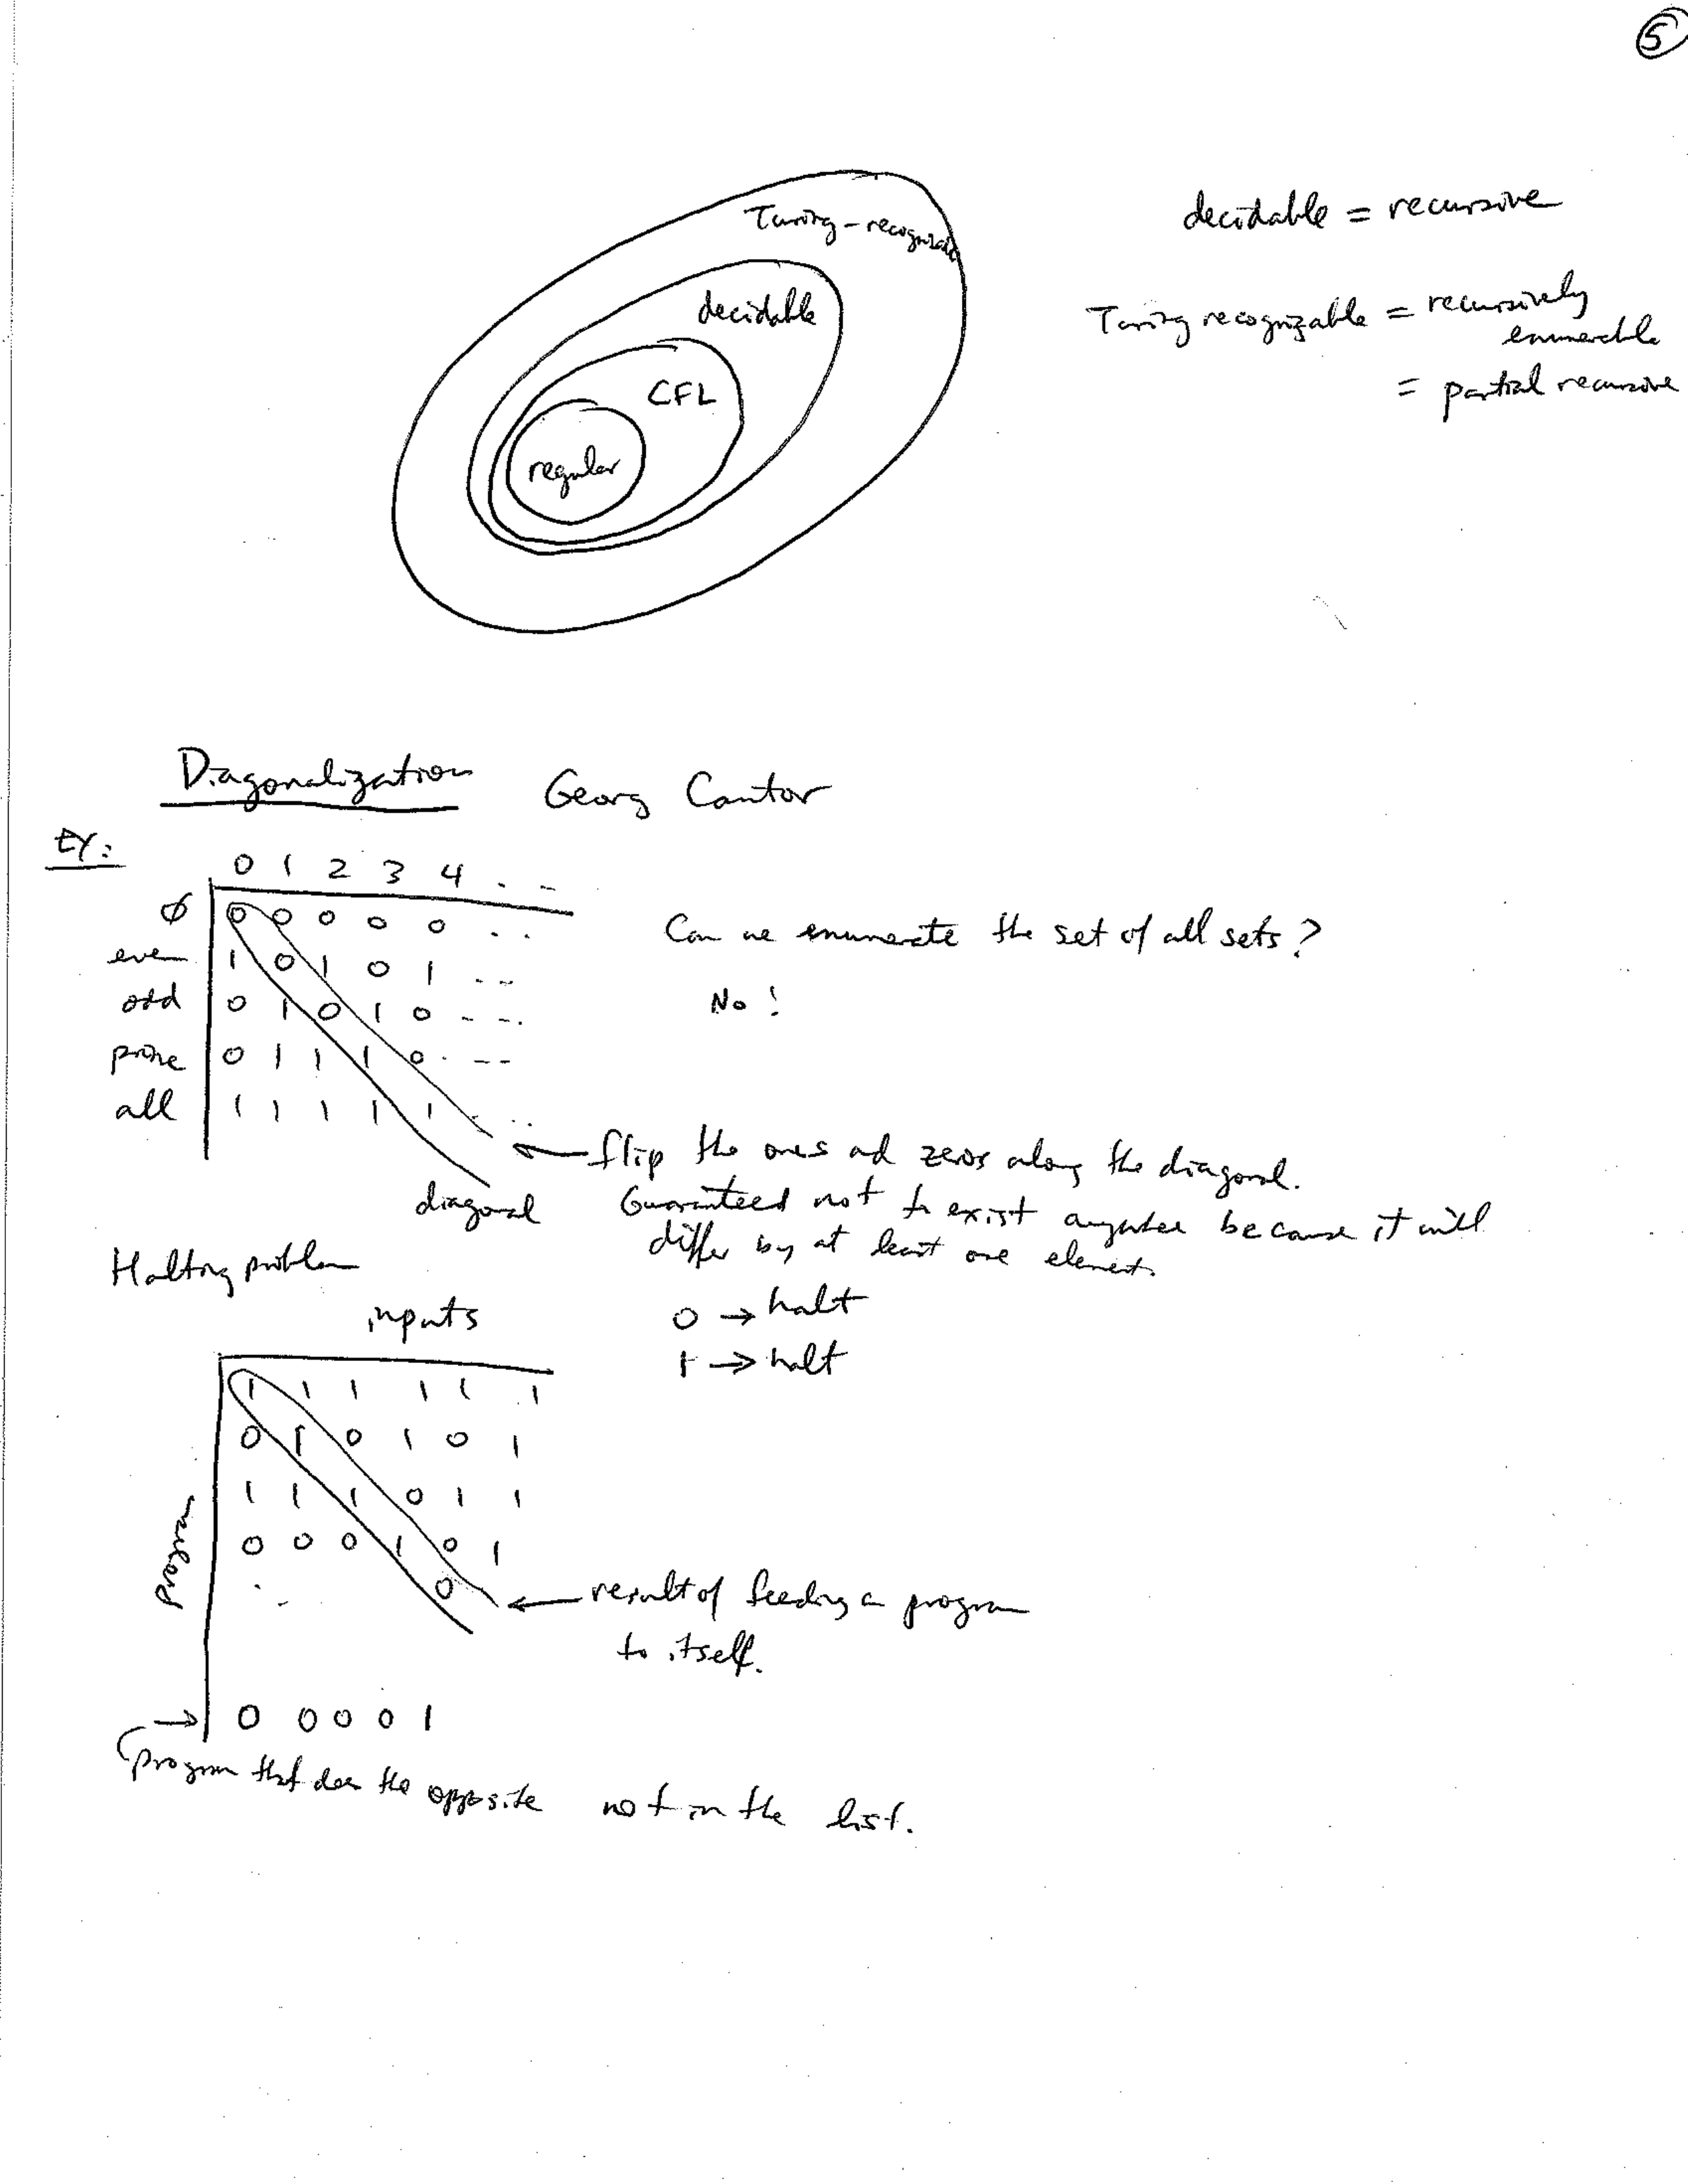 5
Turing-recognizable
decidable
CFL
regular
decidable = recursive
Turing recognizable = recursively
enumerable
= partial recursive
Diagonalization Georg Cantor
EX:
0 1 2 3 4 . -
∅ 0 0 0 0 0 . .
even 1 0 1 0 1 - -
odd 0 1 0 1 0 - - .
prime 0 1 1 1 0 . - -
all 1 1 1 1 1 . . .
Can we enumerate the set of all sets?
No!
flip the ones ad zeros along the diagonal.
Guaranteed not to exist anywhere because it will
differ by at least one element.
diagonal
Halting problem
inputs
0 → halt
1 → halt
1 1 1 1 1 1
0 1 0 1 0 1
1 1 1 0 1 1
0 0 0 1 0 1
0
program
result of feeding a program
to itself.
→ 0 0 0 0 1
program that does the opposite not in the list.